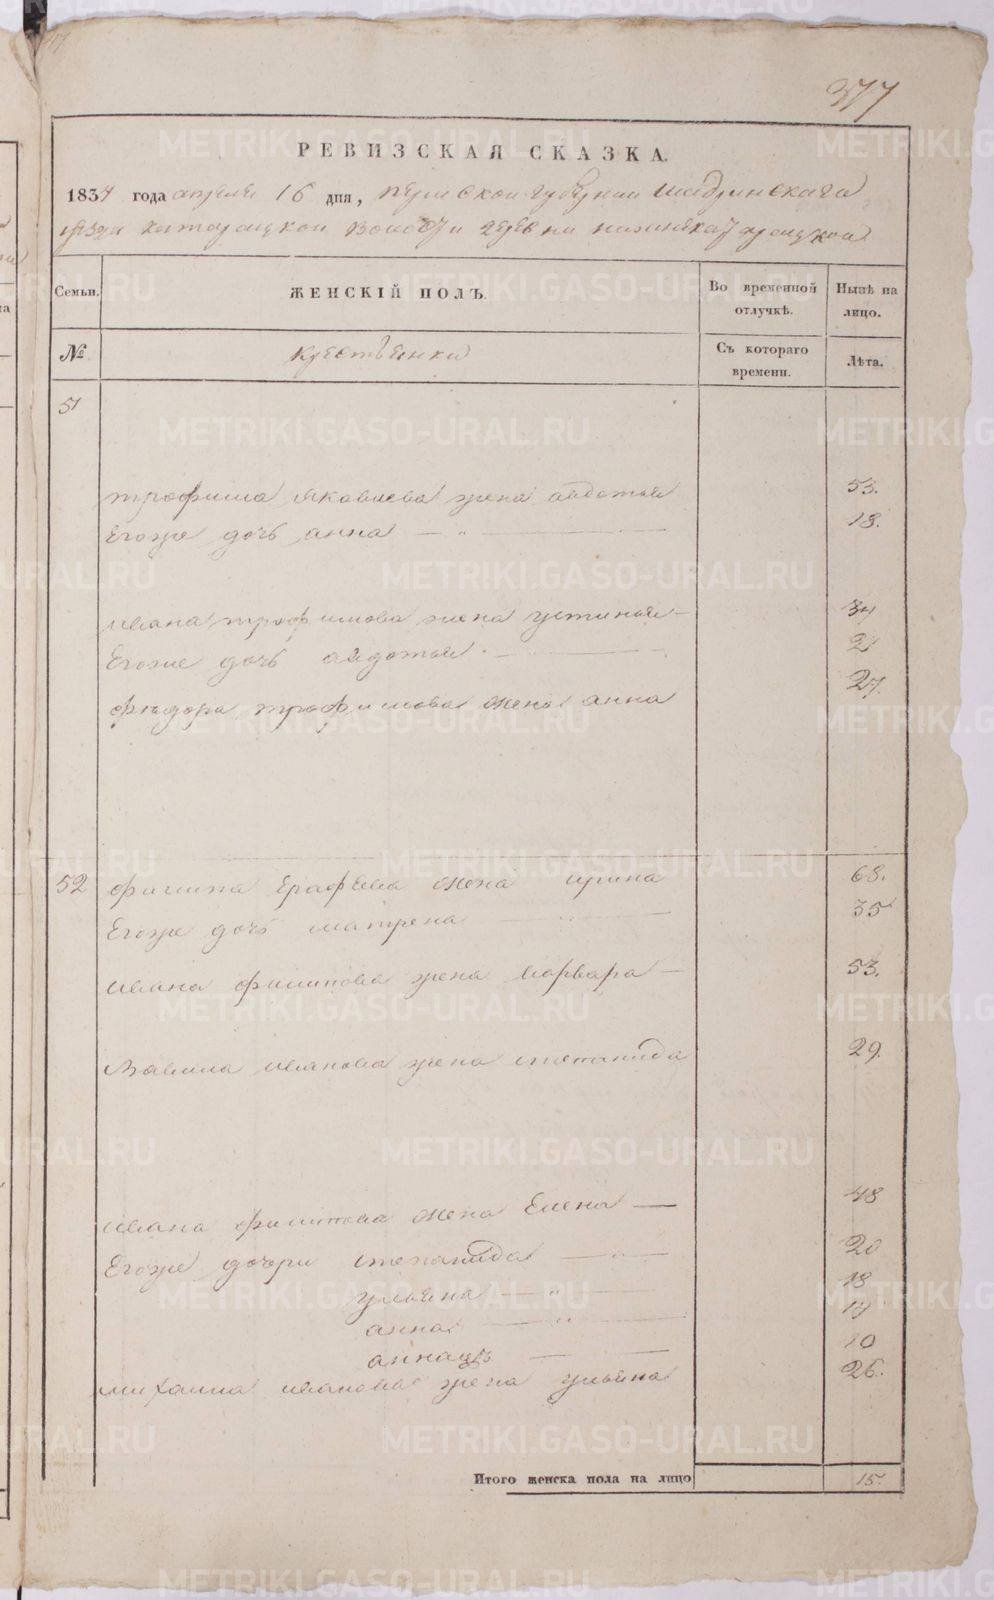 377
РЕВИЗСКАЯ СКАЗКА.
1834 года апреля 16 дня, пермской губернии шадринскаго
уезда катайской волости деревни
Семьи. ЖЕНСКІЙ ПОЛЪ. Во временной отлучкѣ. Нынѣ на лицо.
№ крестьянки Съ котораго времени. Лѣта.
51
трофима яковлева жена авдотья 53.
Егоже дочь анна — „ — 18.
ивана трофимова жена устинья — 34
Егоже дочь авдотья — 2
фѣдора трофимова жена анна 27.
52 филипа Ерафеева жена ирина 68.
Егоже дочь матрена — 35
ивана филипова жена варвара — 53.
Вавила иванова жена степанида 29.
ивана филипова жена Елена — 48
Егоже дочери степанида — „ — 20
ульяна — „ — 18
анна — „ — 17
аннажъ — 10
михаила иванова жена ульяна 26.
Итого женска пола на лицо 15.
METRIKI.GASO-URAL.RU